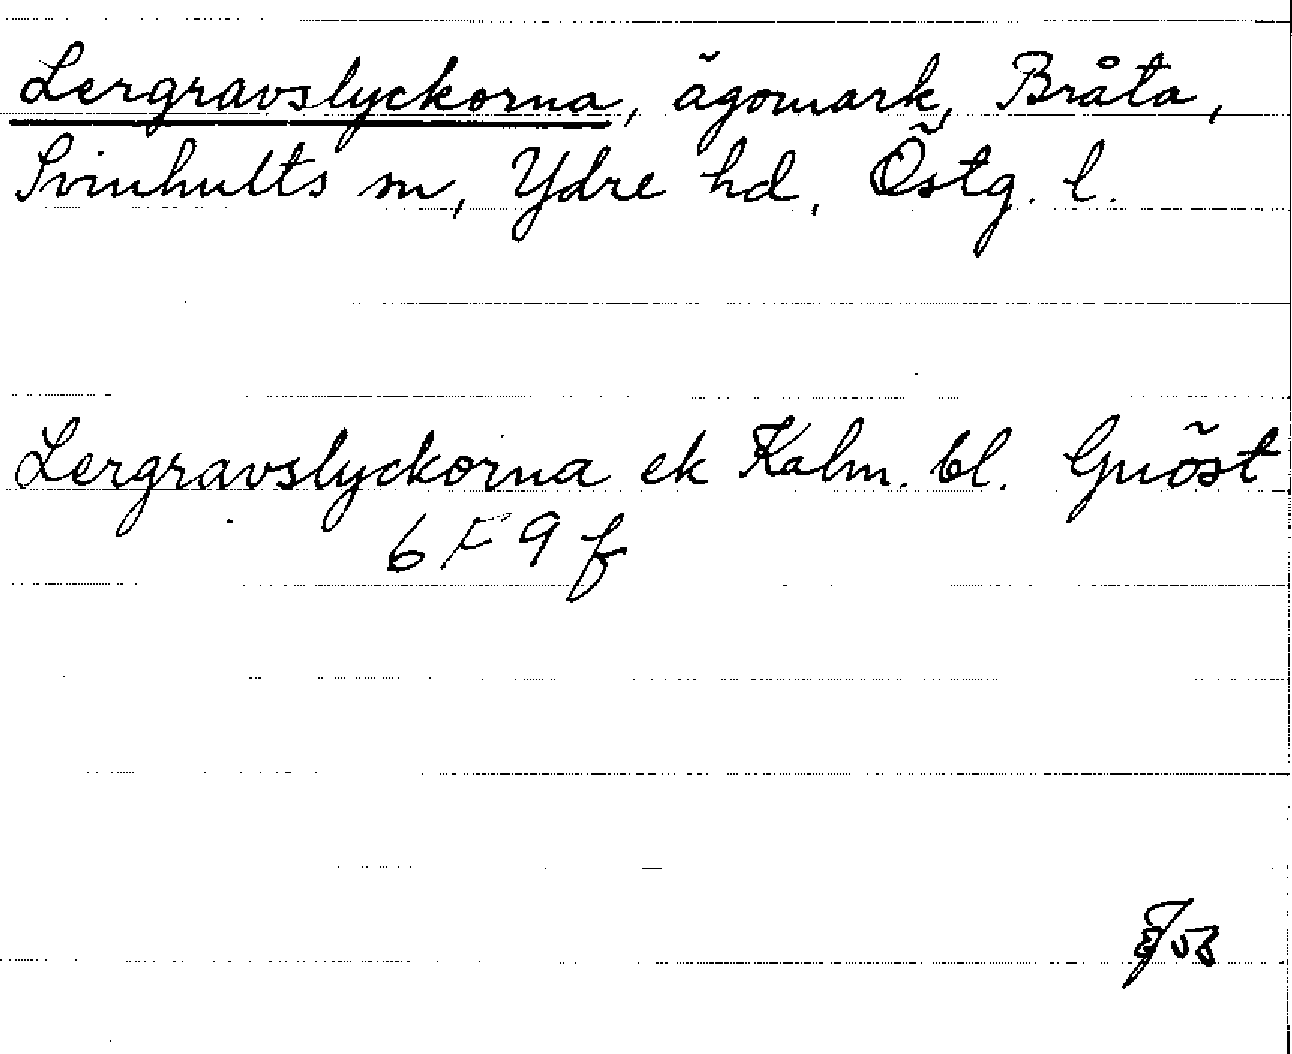 Lergravslyckorna, ägomark, Bråta,
Svinhults sn, Ydre hd, Östg. l.
Lergravslyckorna ek Kalm. bl. Gnöst
6 F 9 f